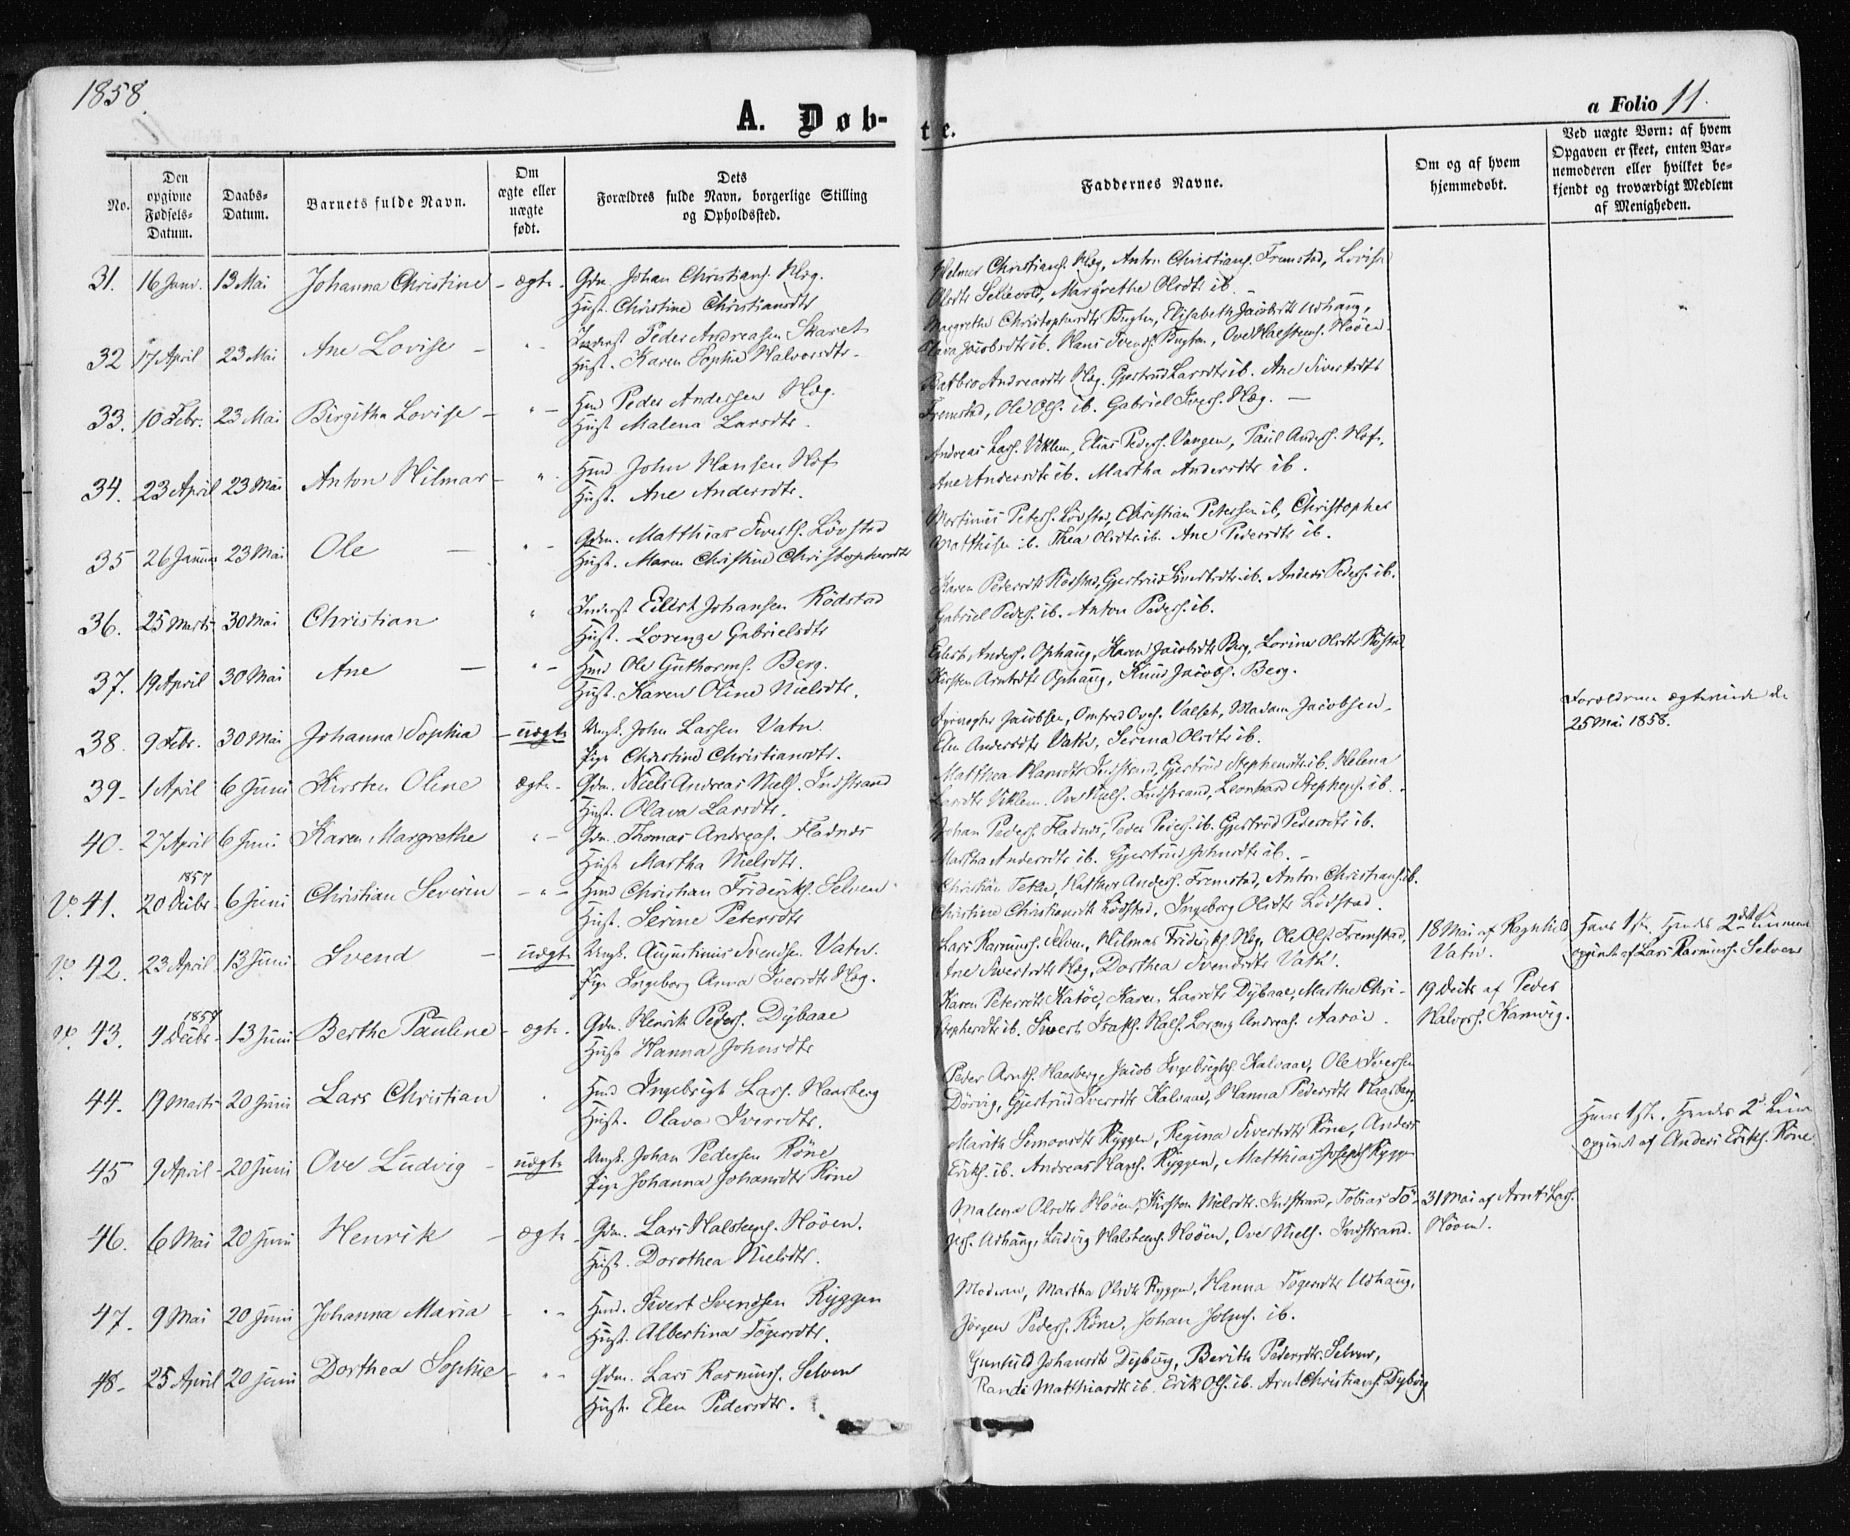 1858.
A. Døb-
te.
a Folio 11.
No.
Den opgivne Fødsels-Datum.
Daabs-Datum.
Barnets fulde Navn.
Om ægte eller uægte født.
Dets Forældres fulde Navn, borgerlige Stilling og Opholdssted.
Faddernes Navne.
Om og af hvem hjemmedøbt.
Ved uægte Børn: af hvem Opgaven er skeet, enten Barnemoderen eller hvilket bekjendt og troværdigt Medlem af Menigheden.
31. 16 Janv. 13 Mai Johanna Christine – ægte – Gdm. Johan Christians. Hæg.
Hust. Christine Christiansdtr
Helmer Christians. Hæg, Anton Christians. Fremstad, Lovise
Olsdtr Selievold, Margrethe Olsdtr ib.
32 17 April 23 Mai Ane Lovise – " – Inderst Peder Andreasen Skaret
Hust. Karen Sophie Halvorsdtr.
Margrethe Christophersdtr, Elisabeth Jacobsdtr Udhaug,
Olava Jacobsdtr ib. Hans Svends. Ove Halstens. Höien
33. 10 Febr. 23 Mai Birgitha Lovise – " – Hmd Peder Andersen Hæg.
Hust Malena Larsdtr.
Barbro Andreasdtr Hæg. Gjertrud Larsdtr ib. Ane Sivertsdtr
Fremstad, Ole Ols. ib. Gabriel Hæg. –
34. 23 April 23 Mai Anton Hilmar – " Hmd. John Hansen Hof
Hust. Ane Andersdtr.
Andreas Lars. Viklem, Elias Peders. Vangen, Paul Anders. Hof,
Ane Andersdtr ib. Martha Andersdtr ib.
35 26 Januar 23 Mai Ole – " – Gdm. Matthias Siverts. Lövstad
Hust. Maren Christine Christophersdtr
Mortinus Peters. Lövstad, Christian Petersen ib, Christopher
Matthisen ib. Thea Olsdtr ib. Ane Pedersdtr ib.
36. 25 Marts 30 Mai Christian " Inderst Eilert Johansen Rödstad
Hust. Lorenze Gabrielsdtr
Karen Pedersdtr Rödstad, Gjertrud Sivertsdtr ib. Anders Peders. ib.
Gabriel Peders. ib. Anton Peders. ib.
37. 19 April 30 Mai Ane – " – Hmd Ole Guthorms. Berg.
Hust. Karen Oline Nielsdtr.
Eilert Anders. Ophaug, Karen Jacobsdtr Berg, Lorine Olsdtr
Kirsten Arntsdtr Ophaug, Knud Jacobs. Berg.
38. 9 Febr. 30 Mai Johanna Sophia – uægte Ungk. John Larsen Vatn.
Pige Christine Christiansdtr.
Jacobsen, Omfred Oves. Valset, Madam Jacobsen,
Elen Andersdtr Vatn, Serena Olsdtr ib.
Forældrene ægteviede den
25 Mai 1858.
39 – 1 April 6 Juni Kirsten Oline ægte – Gdm. Niels Andreas Niels. Indstrand
Hust. Olava Larsdtr.
Matthea Hansdtr Indstrand, Gjertrud Stephensdtr ib. Helena
Larsdtr Viklem. Ove Niels. Indstrand, Leonhard Stephens. ib.
40. 27 April 6 Juni Karen Margrethe " – Gdm. Thomas Andreas. Fladnes
Hust Martha Nielsdtr.
Johan Peders. Fladnes, Peder Peders. ib. Gjertrud Pedersdtr ib.
Martha Andersdtr ib. Gjertrud Johnsdtr ib. –
V. 41. 20 Decbr. 1857 6 Juni Christian Severin – " – Hmd Christian Frideriks. Selven
Hust. Serine Petersdtr
Christian Anders. Fremstad, Anton Christians. ib.
Christine Christiansdtr Lödstad, Ingeborg Olsdtr Lödstad.
V. 42. 23 April 13 Juni Svend – uægte Ungk. Augustinus Svendsen Vatn.
Pige Ingeborg Anna Iversdtr Hæg.
Lars Rasmuss. Selven, Hilmar Frideriks. Hæg, Ole Ols. Fremstad,
Ane Sivertsdtr Hæg, Dorthea Svendsdtr Vatn.
18 Mai af Ragnhild
Vatn.
Hans 1ste, Hendes 2det Leiermaal
opgivet af Lars Rasmuss. Selven
V. 43. 4 Decbr. 1857 13 Juni Berthe Pauline – ægte – Gdm. Henrik Peders. Dybaae
Hust Hanna Johnsdtr
Karen Petersdtr Karen Larsdtr Dybaae, Marthe Chri-
stophersdtr ib. Sivert Isaks. Lorentz Andreas. Aaröe.
19 Decbr af Peder
Halvors. Kamvig.
44. 19 Marts 20 Juni Lars Christian " Hmd Ingebrigt Lars. Haarberg
Hust. Olava Iversdtr.
Peder Arnts. Haarberg, Jacob Ingebrigts. Kalsaae, Ole Iversen
Dörvig, Gjertrud Iversdtr Kalsaae, Hanna Pedersdtr Haarberg
45 9 April 20 Juni Ove Ludvig – uægte Ungk. Johan Pedersen Röne
Pige Johanna Johansdtr Röne
Marith Simonsdtr Ryggen, Regina Sivertsdtr Röne, Anders
Eriks. ib. Andreas Hans. Ryggen, Matthias Josephs. Rygge
Hans 1ste, Hendes 2d Leier
opgivet af Anders Eriks. Röne
46. 6 Mai 20 Juni Henrik – ægte – Gdm. Lars Halstens. Höven.
Hust. Dorothea Nielsdtr.
Malena Olsdtr Höven, Kirsten Nielsdtr Indstrand, Tobias Tö-
ges. Udhaug, Ludvig Halstens. Höven, Ove Niels. Indstrand.
31 Mai af Arnt Lars.
Höven.
47. 9 Mai 20 Juni Johanna Maria " – Hmd. Sivert Svendsen Ryggen
Hust. Albertina Tögersdtr.
Moderen, Martha Olsdtr Ryggen, Hanna Tögersdtr Udhaug,
Jörgen Peders. Röne, Johan Johns. ib.
48 – 25 April 20 Juni Dorthea Sophie – " – Gdm. Lars Rasmuss. Selven
Hust. Elen Pedersdtr.
Gunhild Johansdtr Dybvig, Berith Pedersdtr Selven,
Randi Matthiasdtr ib. Erik Ols. ib. Arnt Christians. Dybvig